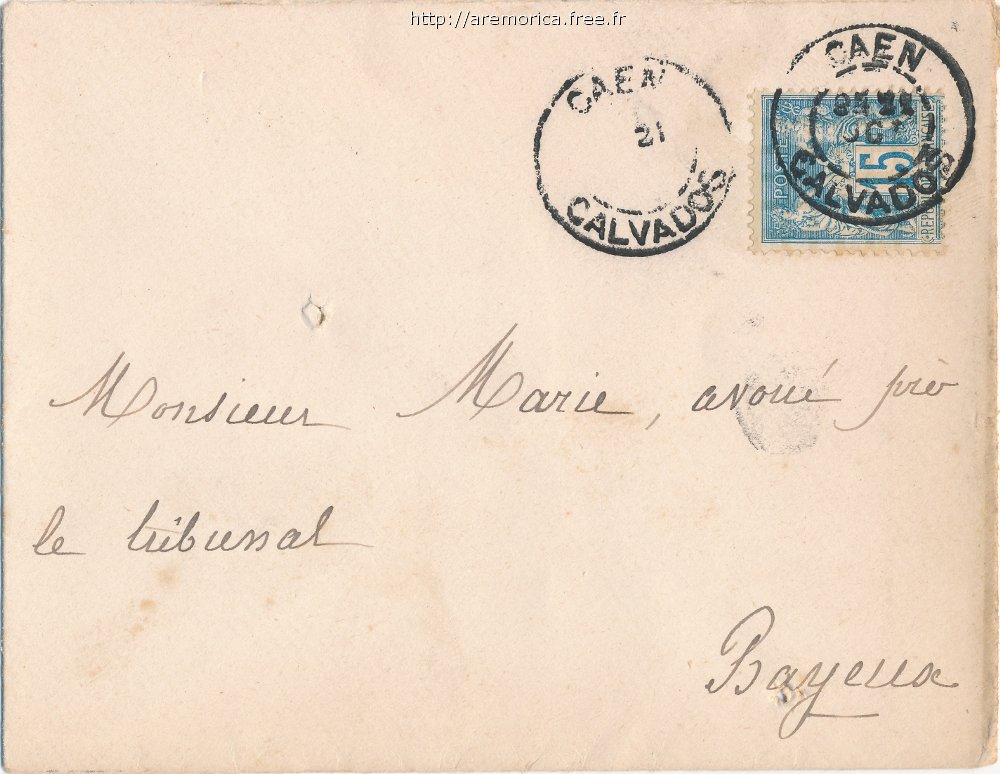 http://aremorica.free.fr
CAEN
21
CALVADOS
CAEN
21
OCT
CALVADOS
POSTES
15
REPUB
Monsieur Marie, avoué près
le tribunal
Bayeux